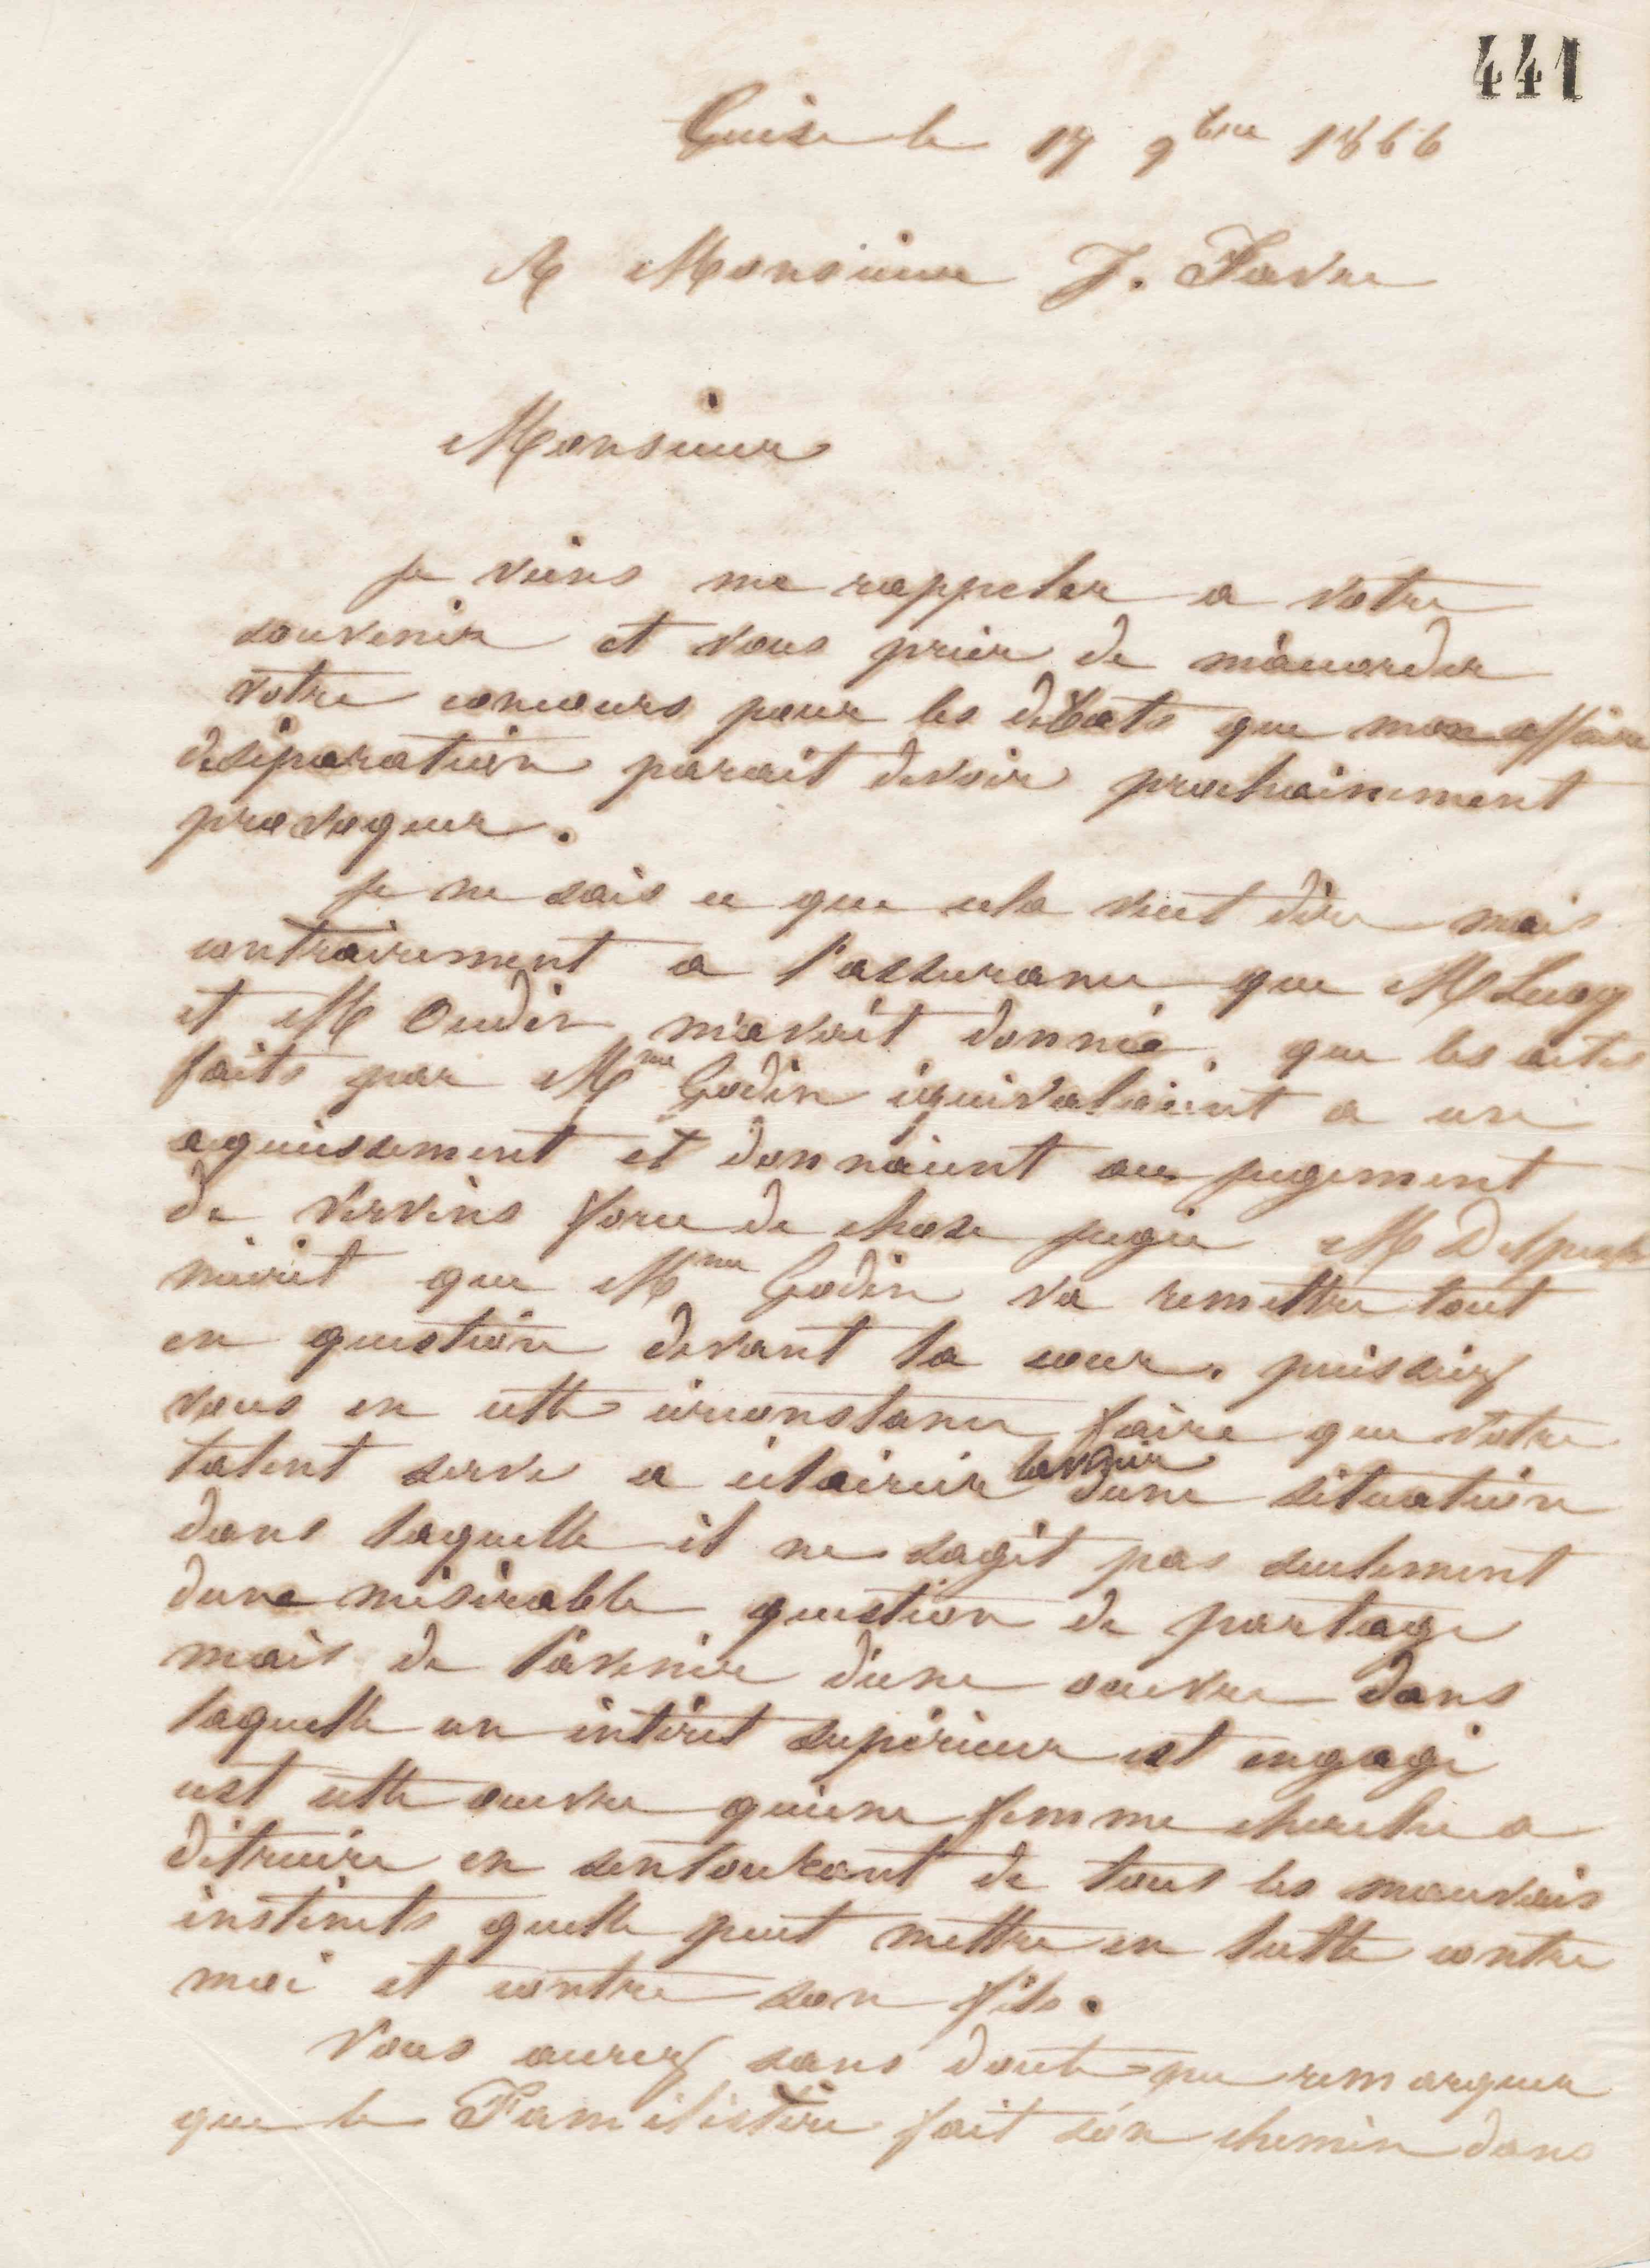 441
Guise le 17 9bre 1866
A Monsieur J. Favre
Monsieur
Je viens me rappeler a votre
souvenir et vous prier de m'accorder
votre concours pour les débats que mon affaire
de séparation parait devoir prochainement
provoquer.
Je ne sais ce que cela veut dire mais
contrairement a l'assurance que M Lecoq
et M Oudin m'avait donné, que les actes
faits par Mme Godin équivalaient a un
aquiessement et donnaient au jugement
de Vervins force de chose jugée M
m'écrit que Mme Godin va remettre tout
en question devant la cour. puissiez
vous en cette circonstance faire que votre
talent serve a éclaircir la cour d'une situation
dans laquelle il ne sagit pas seulement
dune misérable question de partage
mais de l'avenir d'une oeuvre dans
laquelle un intéret supérieur est engagé
cest cette oeuvre qu'une femme cherche a
détruire en sentourant de tous les mauvais
instincts quelle peut mettre en lutte contre
moi et contre son fils.
Vous aurez sans doute pu remarquer
que le Familistère fait son chemin dans